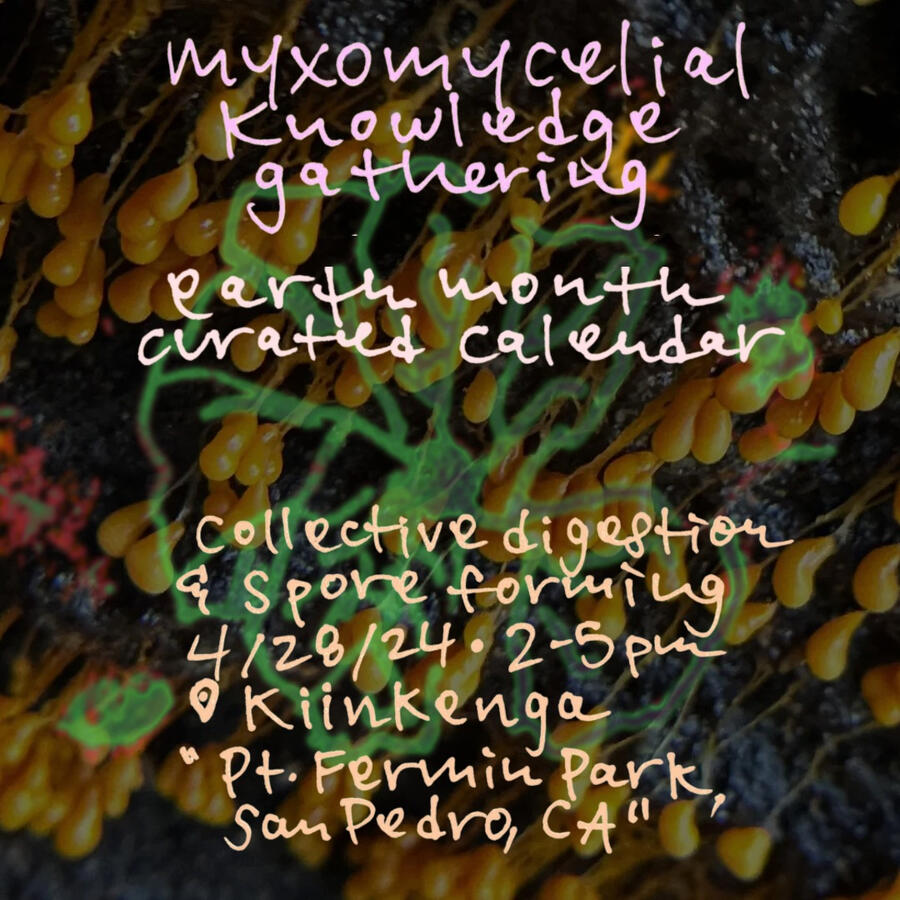 myxomycelial
knowledge
gathering
earth month
curated calendar
collective digestion
& spore forming
4/28/24 • 2-5pm
Kiinkenga
"Pt. Fermin Park,
San Pedro, CA"